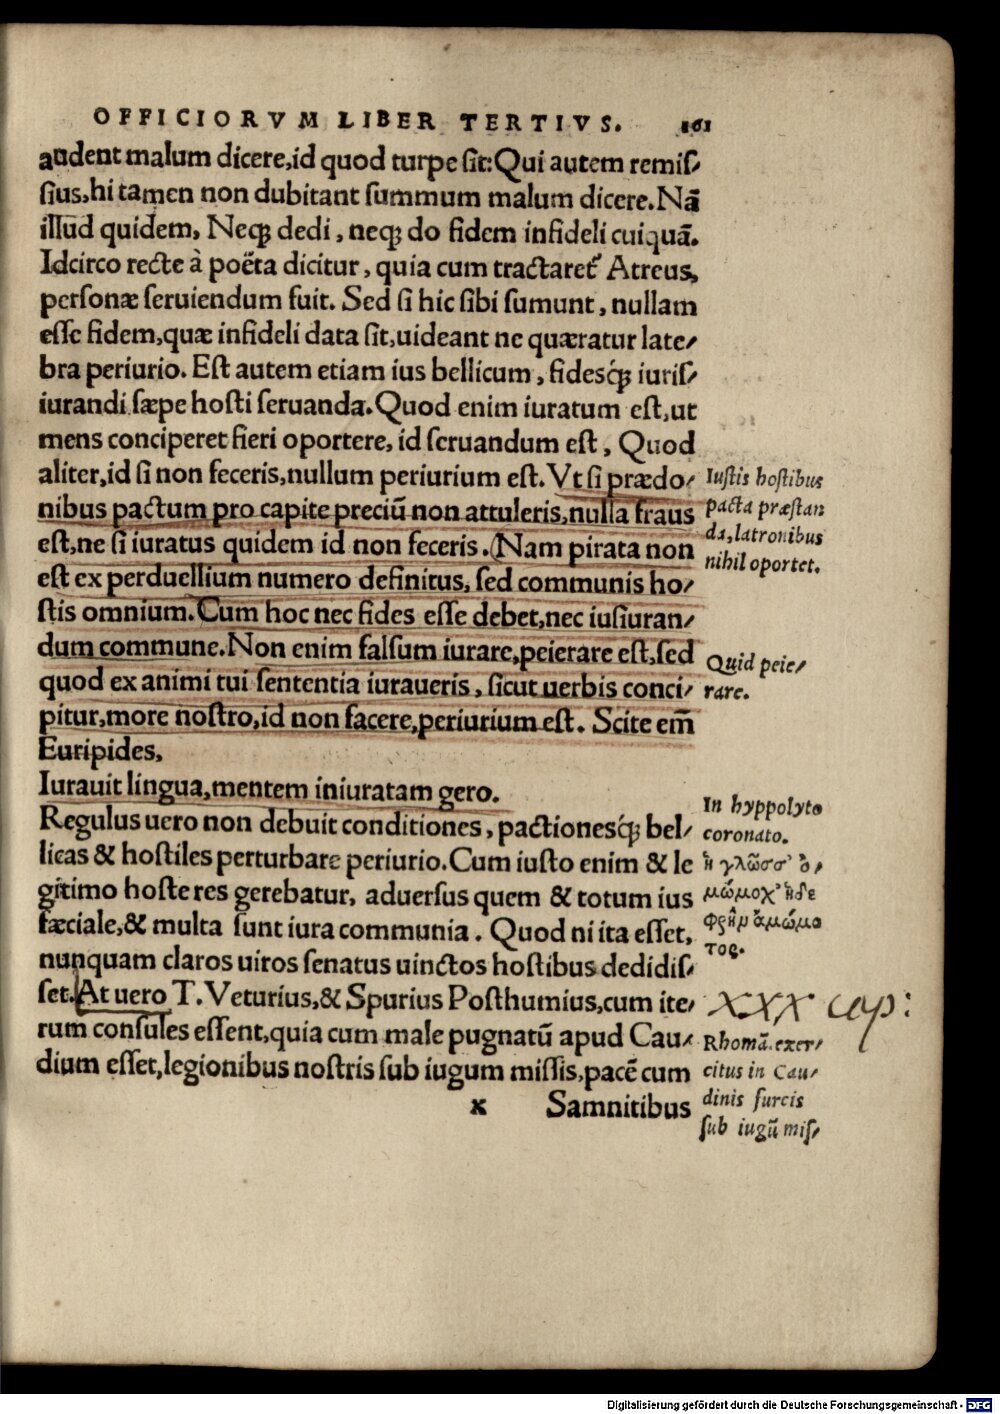 OFFICIORVM LIBER TERTIVS. 161
audent malum dicere,id quod turpe sit:Qui autem remis/
sius,hi tamen non dubitant summum malum dicere.Nã
illud quidem, Neqꝫ dedi, neqꝫ do fidem infideli cuiquã.
Idcirco recte à poëta dicitur, quia cum tractaretᷣ Atreus,
personæ seruiendum fuit. Sed si hic sibi sumunt, nullam
esse fidem,quæ infideli data sit,uideant ne quæratur late/
bra periurio. Est autem etiam ius bellicum, fidesq́ꝫ iuris/
iurandi sæpe hosti seruanda.Quod enim iuratum est,ut
mens conciperet fieri oportere, id seruandum est, Quod
aliter,id si non feceris,nullum periurium est. Vt si prædo/
nibus pactum pro capite preciũ non attuleris,nulla fraus
est,ne si iuratus quidem id non feceris. (Nam pirata non
est ex perduellium numero definitus, sed communis ho/
stis omnium. Cum hoc nec fides esse debet,nec iusiuran/
dum commune. Non enim falsum iurare,peierare est,sed
quod ex animi tui sententia iuraueris, sicut uerbis conci/
pitur,more nostro,id non facere,periurium est. Scite em̃
Euripides,
Iurauit lingua,mentem iniuratam gero.
Regulus uero non debuit conditiones, pactionesq́ꝫ bel/
licas & hostiles perturbare periurio. Cum iusto enim & le
gitimo hoste res gerebatur, aduersus quem & totum ius
fæciale,& multa sunt iura communia. Quod ni ita esset,
nunquam claros uiros senatus uinctos hostibus dedidis/
set. At uero T. Veturius,& Spurius Posthumius,cum ite/
rum consules essent,quia cum male pugnatũ apud Cau/
dium esset,legionibus nostris sub iugum missis,pacẽ cum
x Samnitibus
Iustis hostibus
pacta præstan
da,latronibus
nihil oportet.
Quid peie/
rare.
In hyppolyto
coronato.
ἡ γλῶσσ' ὀ/
μώμοχ' ἡ δὲ
φρὴν ἀνώμο
τος.
XXX cap:
Rhomã. exer/
citus in Cau/
dinis furcis
sub iugũ mis/
Digitalisierung gefördert durch die Deutsche Forschungsgemeinschaft - DFG